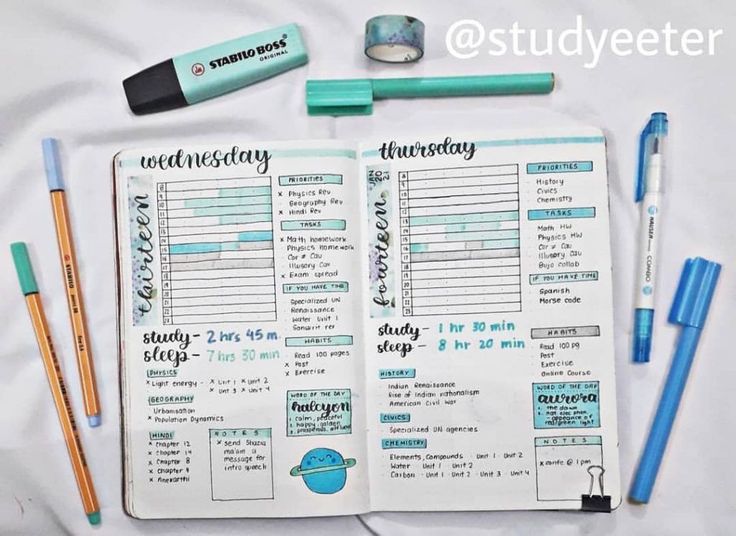 @studyeeter
STABILO BOSS
ORIGINAL
wednesday
thirteen
8
9
10
11
12
13
14
15
16
17
PRIORITIES
x Physics Rev
Geography Rev
x Hindi Rev
TASKS
x Math homework
Physics homework
Cor ≠ Cau
Illusory Cor
x Exam spread
IF YOU HAVE TIME
Specialized UN
Renaissance
Water Unit 1
Sanskrit rev
study - 2 hrs 45 m
sleep - 7 hrs 30 min
HABITS
Read 100 pages
x Post
x Exercise
PHYSICS
x Light energy - x Unit 1 x Unit 2
x Unit 3 x Unit 4
GEOGRAPHY
Urbanisation
x Population Dynamics
HINDI
x Chapter 12
x Chapter 14
x Chapter 8
x Chapter 9
x Anekarthi
NOTES
x send Shazia
ma'am a
message for
intro speech
WORD OF THE DAY
halcyon
1. calm, peaceful
2. happy, golden
3. prosperous, affluent
thursday
JAN
20
21
fourteen
PRIORITIES
History
Civics
Chemistry
TASKS
Math HW
Physics HW
Cor ≠ Cau
Illusory Cau
Bujo collab
IF YOU HAVE TIME
Spanish
Morse code
study - 1 hr 30 min
sleep - 8 hr 20 min
HABITS
Read 100 pg
Post
Exercise
Online Course
HISTORY
Indian Renaissance
Rise of Indian nationalism
American Civil War
CIVICS
Specialized UN agencies
CHEMISTRY
Elements, Compounds - Unit 1 - Unit 2
Water - Unit 1 - Unit 2
Carbon - Unit 1 - Unit 2 - Unit 3 - Unit 4
WORD OF THE DAY
aurora
1. the dawn
- appearance of
light
NOTES
@ 1 pm
STABILO
HAUSER